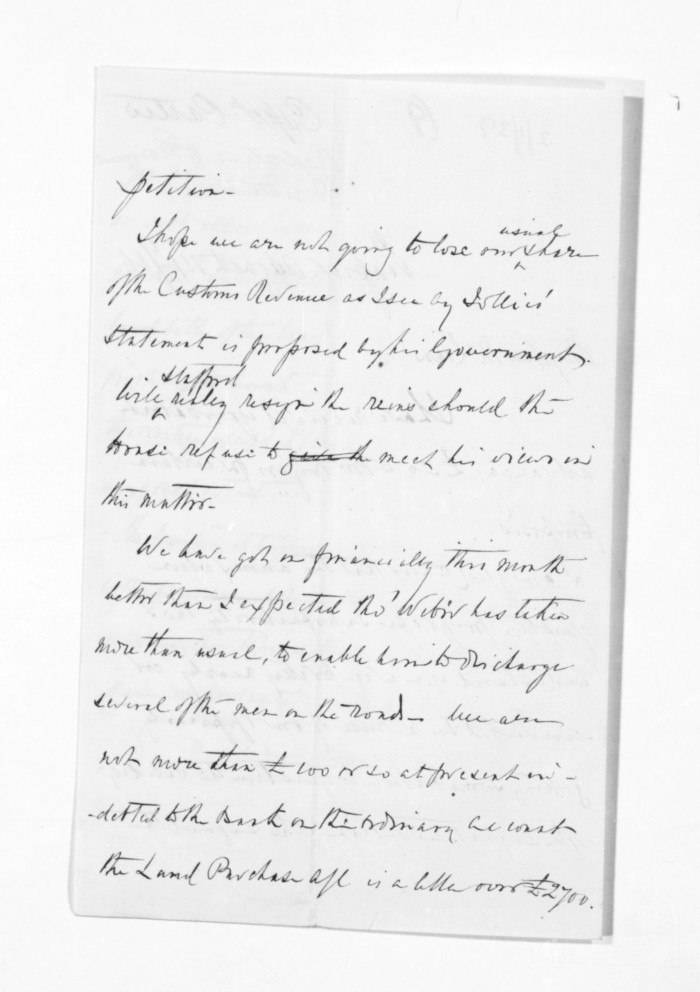 petition -
I hope we are not going to lose our usual share
of the Customs Revenue as I see by Jollies'
statement is proposed by his Government.
Will Stafford really resign the reins should the
House refuse to give the meet his views in
this matter -
We have got on financially this month
better than I expected tho' Weber has taken
more than usual, to enable him to discharge
several of the men on the roads - We are
not more than £100 or so at present in-
-debted to the Bank on the ordinary account
the Land Purchase a/c is a little over £2700.